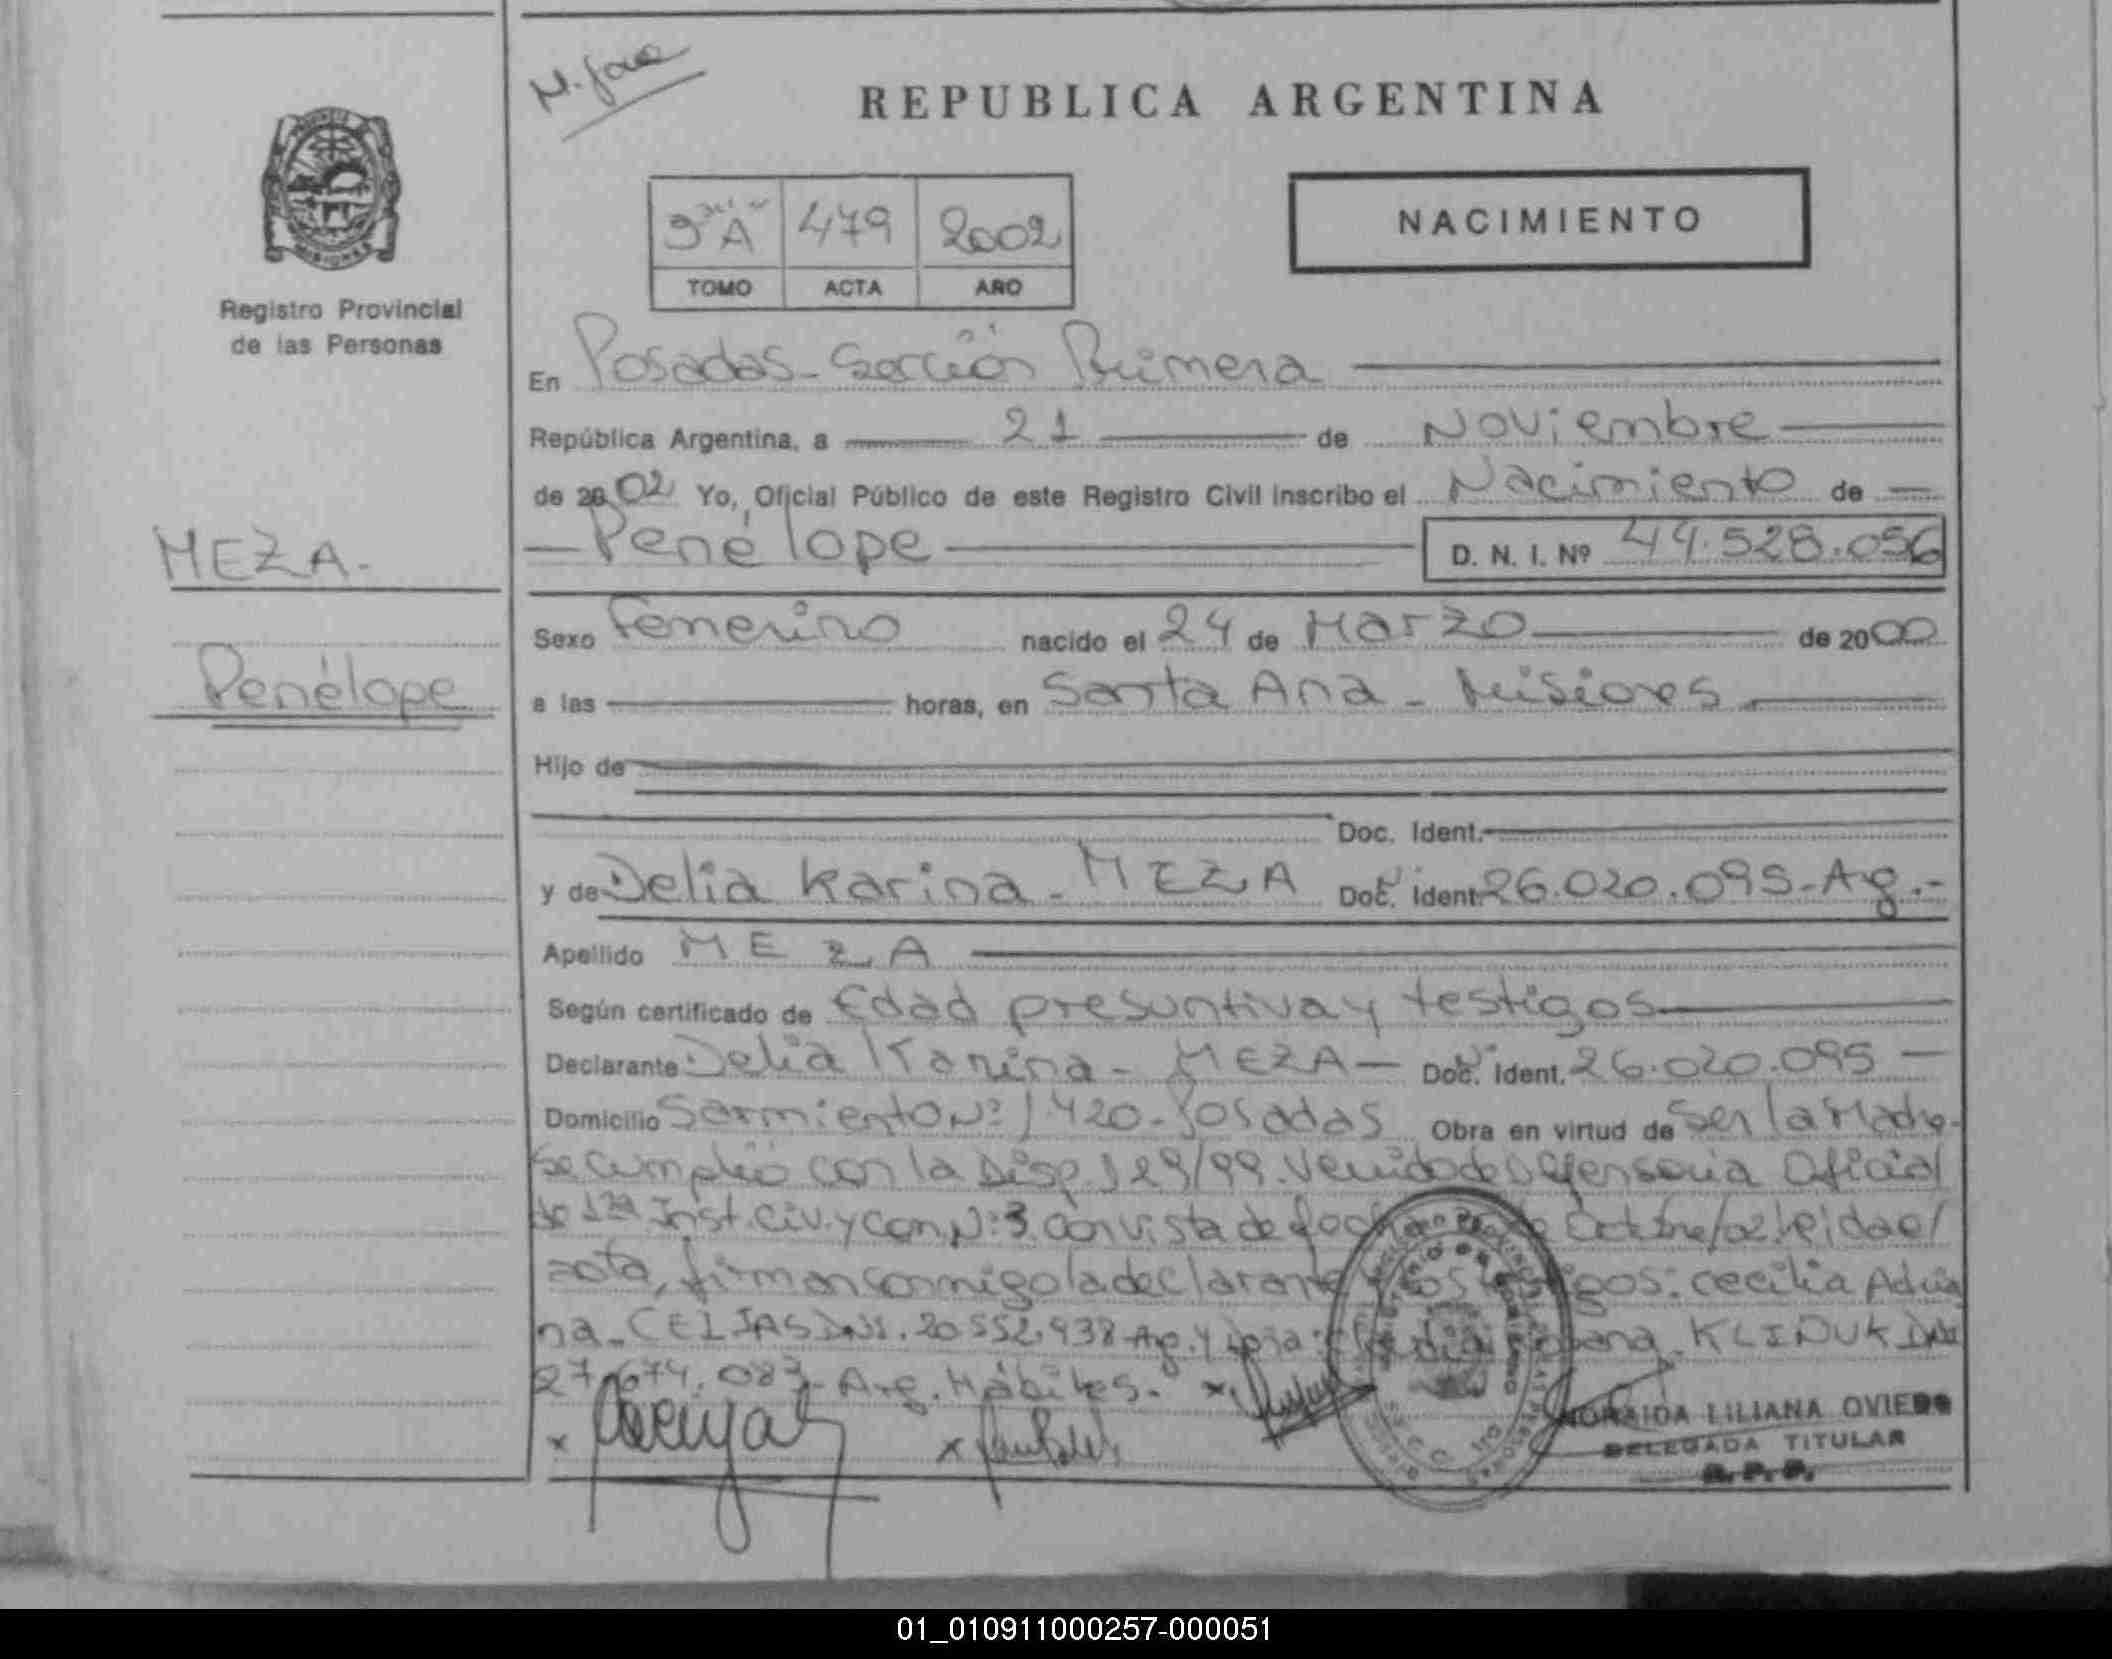 REPUBLICA ARGENTINA
3° "A" 479 2002
TOMO ACTA AÑO
NACIMIENTO
Registro Provincial
de las Personas
MEZA.
Penélope
En Posadas - Sección Primera
República Argentina, a 21 de Noviembre
de 2002 Yo, Oficial Público de este Registro Civil inscribo el Nacimiento de
Penélope D. N. I. Nº 44.528.056
Sexo Femenino nacido el 24 de Marzo de 2000
a las horas, en Santa Ana - Misiones
Hijo de
Doc. Ident.
y de Delia Karina - MEZA Doc. Ident. 26.020.095 - Arg.-
Apellido MEZA
Según certificado de Edad presuntiva y testigos
Declarante Delia Karina - MEZA - Doc. Ident. 26.020.095 -
Domicilio Sarmiento Nº 1420 - Posadas Obra en virtud de Ser la Madre.
Se cumplió con la Disp. 129/99. Venido de Defensoria Oficial
de 1ra Inst. Civ. y Com Nº 3. con vista de Octubre/02 leida el
acta, firman conmigo la declarante testigos: Cecilia Adria
na - CELIAS DNI. 20.552.938 Arg. y KLINUK DNI
27.674.087 - Arg. Hábiles.-
x x x
NORAIDA LILIANA OVIEDO
DELEGADA TITULAR
R. P. P.
01_010911000257-000051